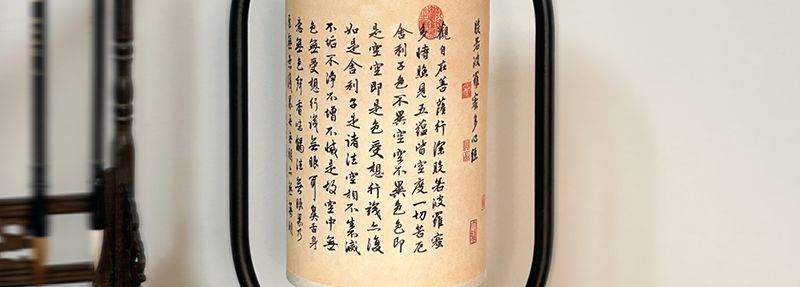 般若波羅蜜多心經
觀自在菩薩行深般若波羅蜜
多時照見五蘊皆空度一切苦厄
舍利子色不異空空不異色色即
是空空即是色受想行識亦復
如是舍利子是諸法空相不生滅
不垢不淨不增不減是故空中無
色無受想行識無眼耳鼻舌身
意無色聲香味觸法無眼界乃